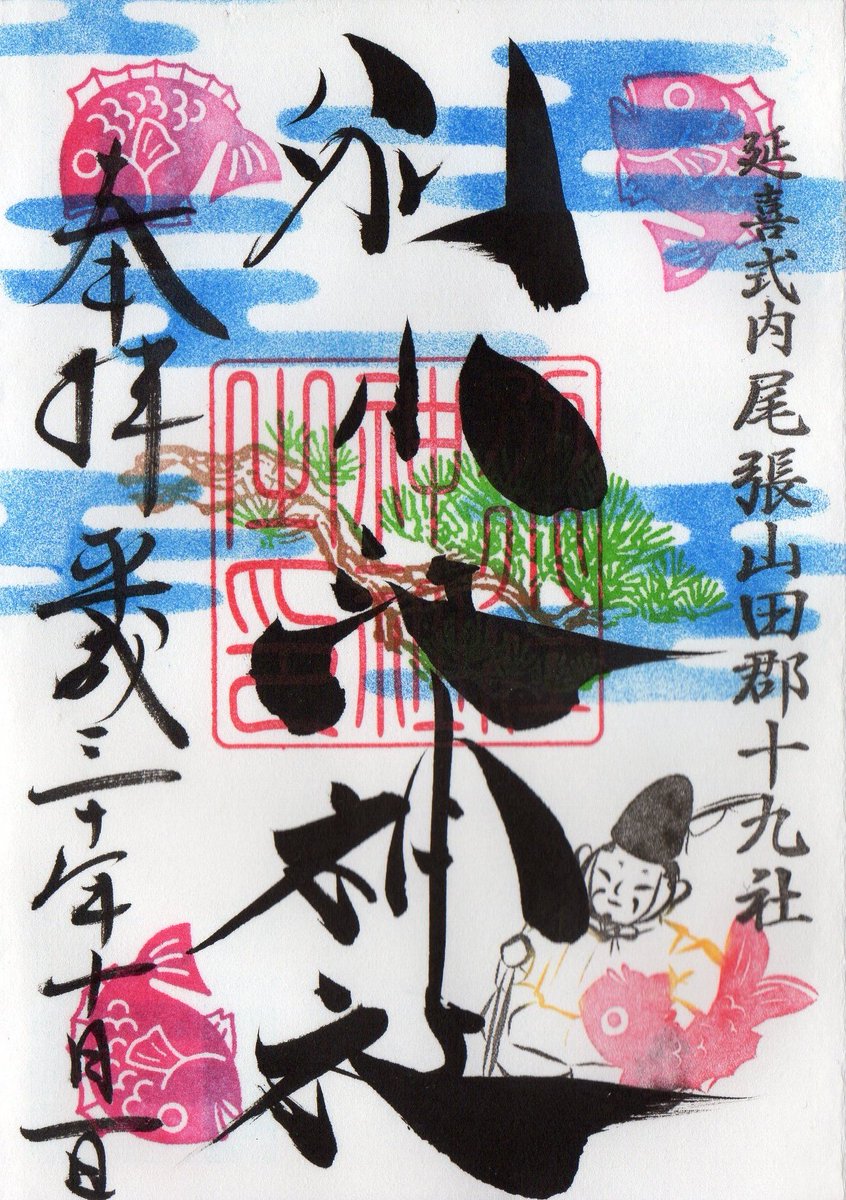 延喜式内尾張山田郡十九社
別小江神社
奉拝
平成三十年十月一日